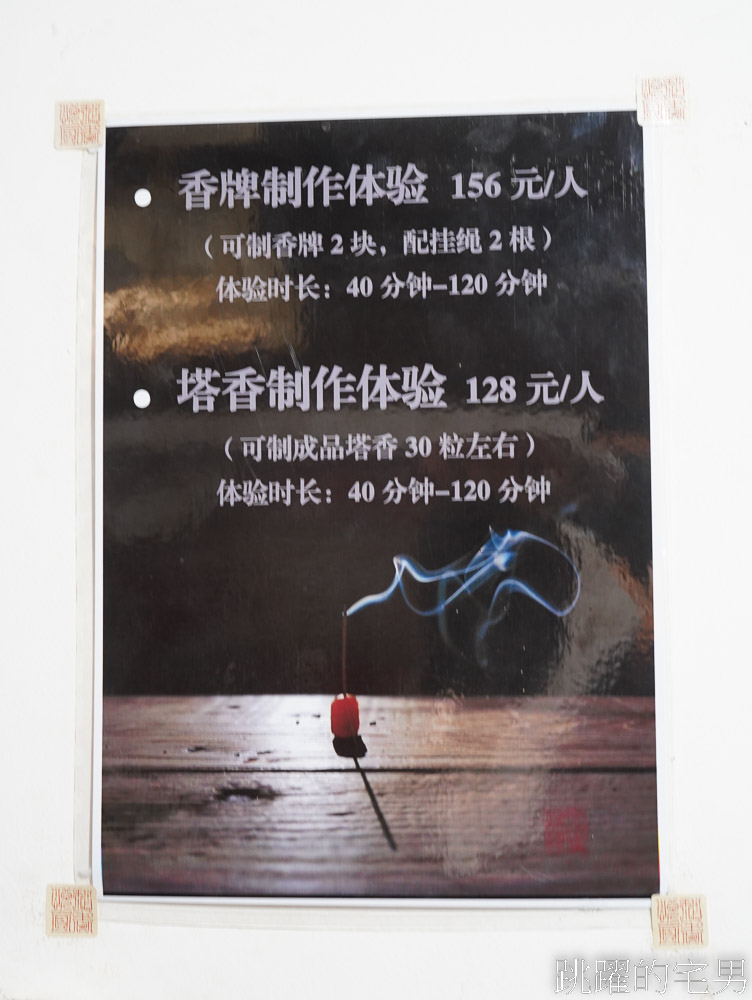 香牌制作体验 156 元/人
（可制香牌 2 块，配挂绳 2 根）
体验时长：40 分钟-120 分钟
塔香制作体验 128 元/人
（可制成品塔香 30 粒左右）
体验时长：40 分钟-120 分钟
跳躍的宅男